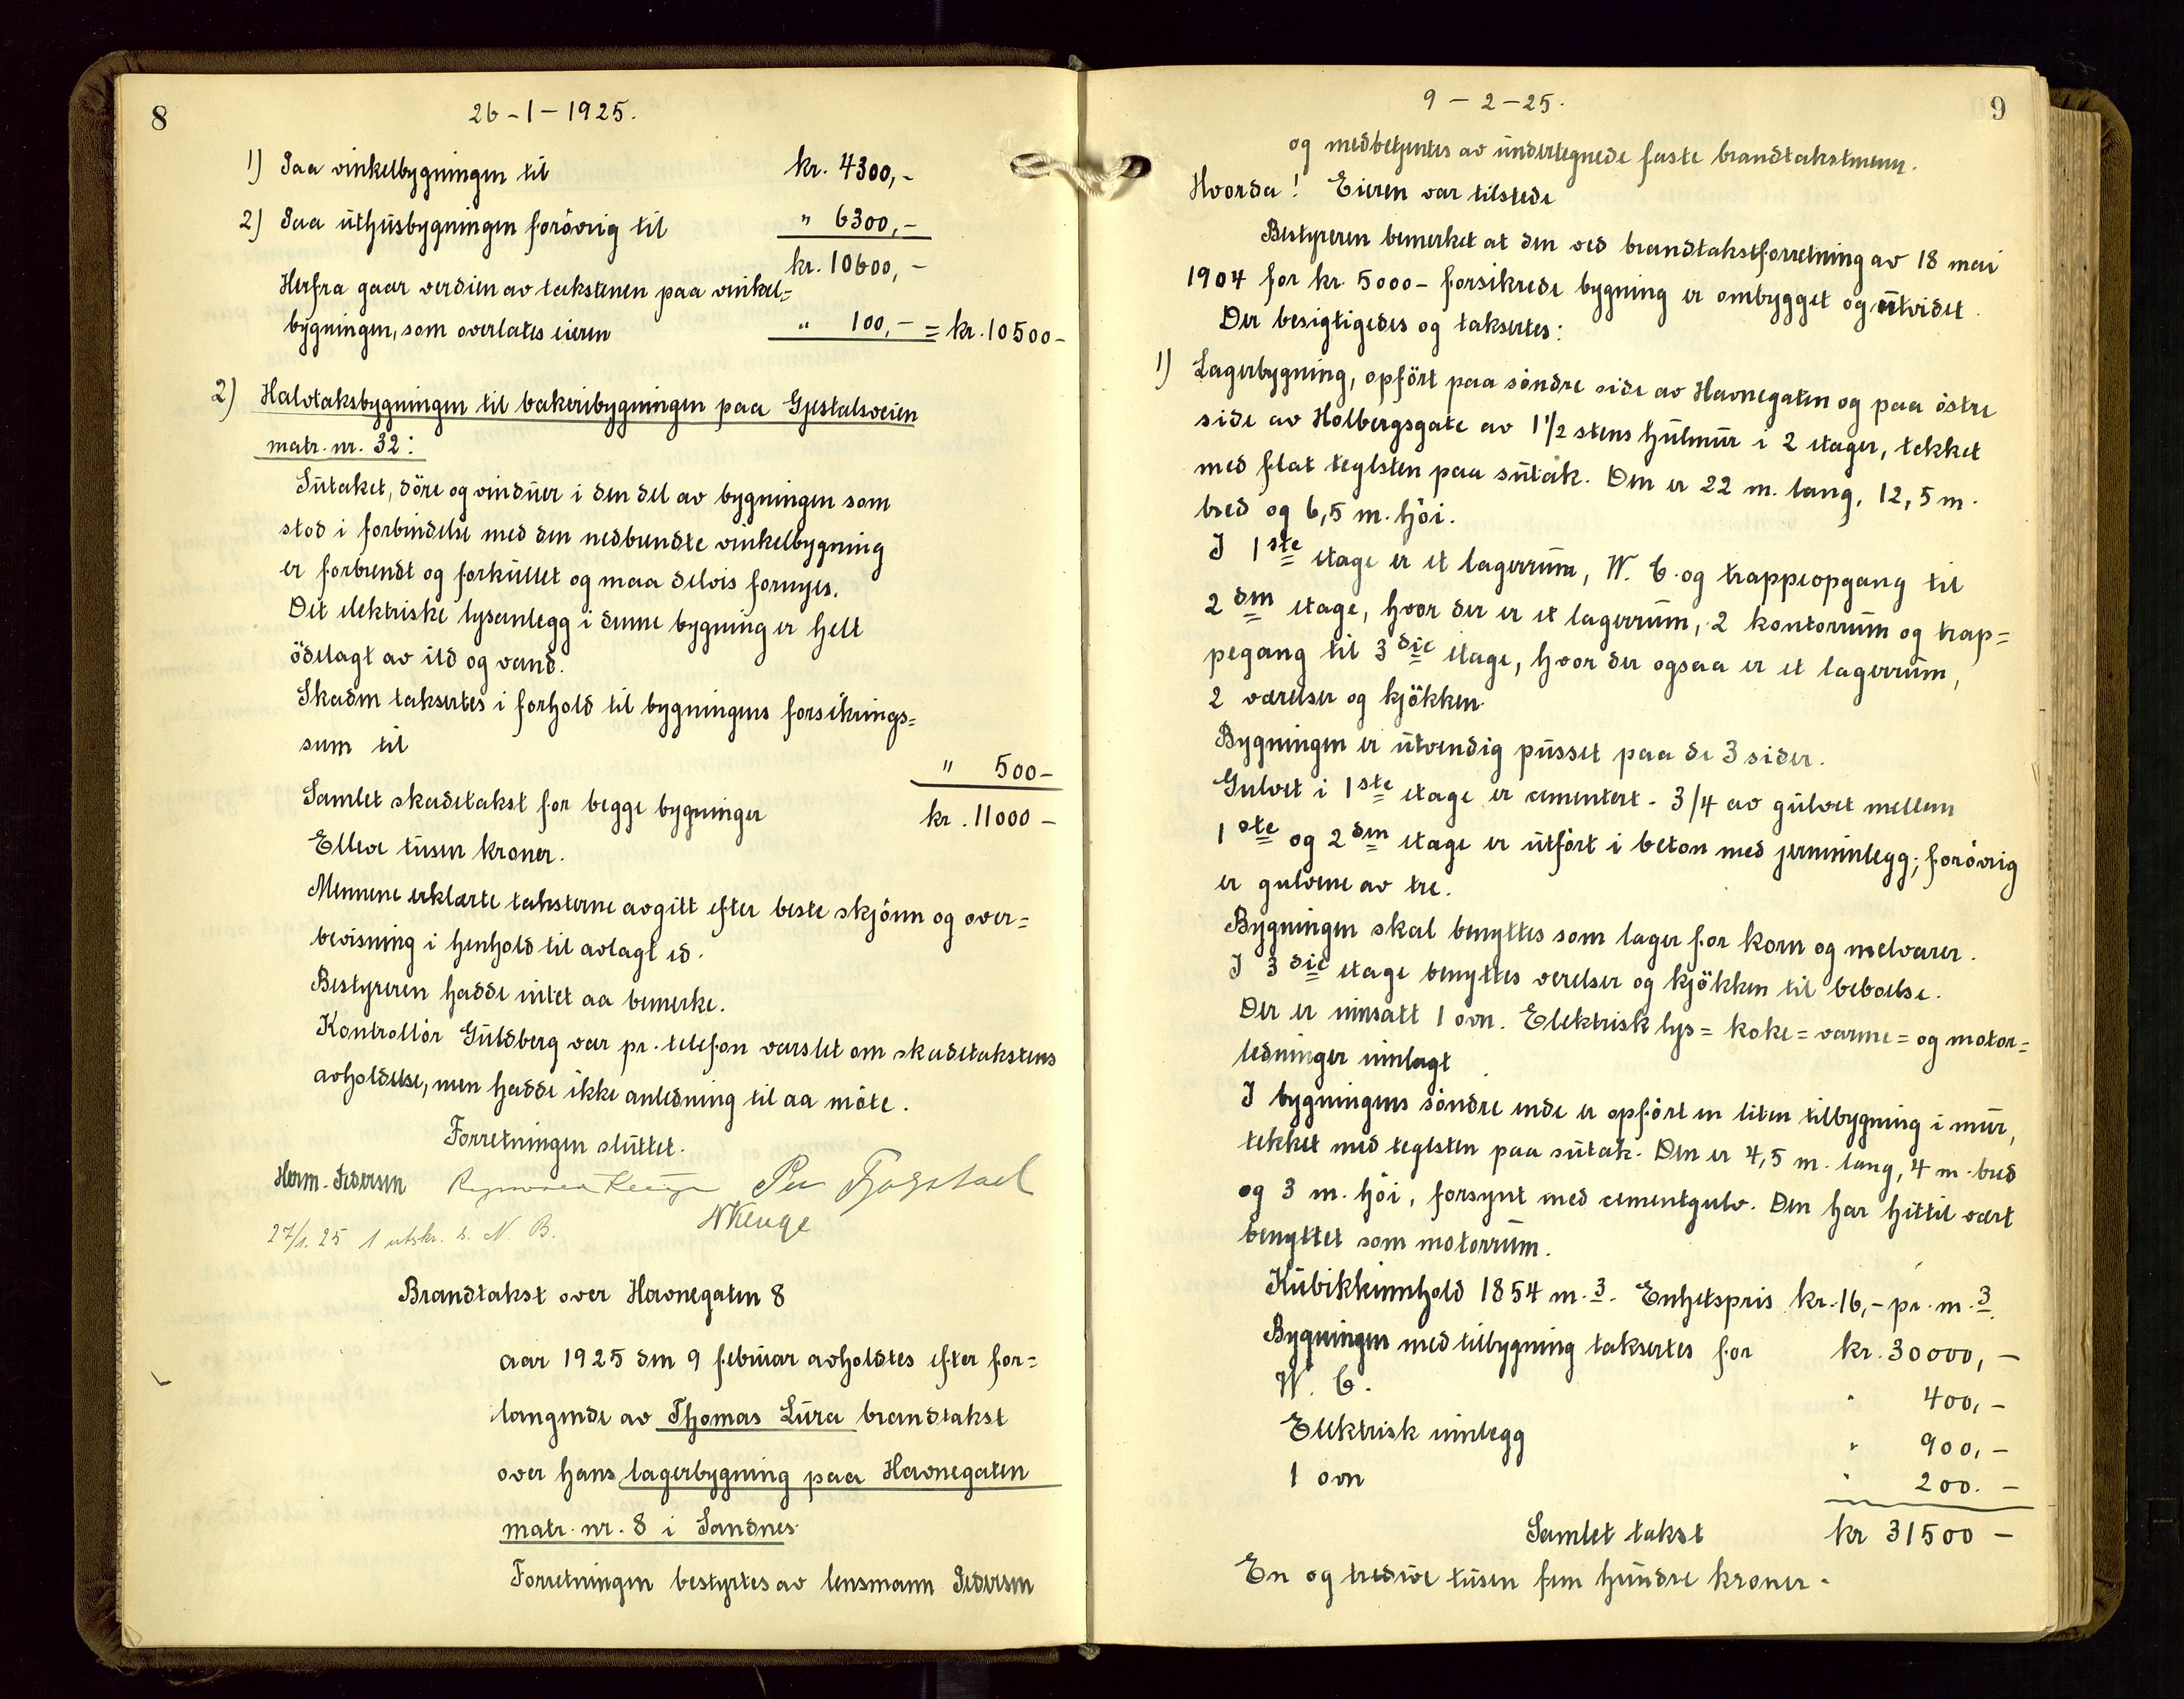 8
26-1-1925.
1) Paa vinkelbygningen til kr. 4300,-
2) Paa uthusbygningen forøvrig til " 6300,-
kr. 10600,-
Herfra gaar verdien av takstenen paa vinkel=
bygningen, som overlates eieren " 100,- = kr. 10500-
2) Halvtaksbygningen til bakeribygningen paa Gjestalsveien
matr. nr. 32:
Sutaket, döre og vinduer i den del av bygningen som
stod i forbindelse med den nedbrendte vinkelbygning
er forbrendt og forkullet og maa delvis fornyes.
Det elektriske lysanlegg i denne bygning er helt
ödelagt av ild og vand.
Skaden taksertes i forhold til bygningens forsikrings=
sum til " 500-
Samlet skadetakst for begge bygninger kr. 11000-
Elleve tusen kroner.
Mennene erklærte taksterne avgitt efter beste skjönn og over=
bevisning i henhold til avlagt ed.
Bestyreren hadde intet aa bemerke.
Kontrollör Guldberg var pr. telefon varslet om skadetakstens
avholdelse, men hadde ikke anledning til aa möte.
Forretningen sluttet.
Herm. Pedersen Per Fjogstad
27/1.25 1 utskr. s. N. B.
Brandtakst over Havnegaten 8
aar 1925 den 9 februar avholdtes efter for=
langende av Thomas Lura brandtakst
over hans lagerbygning paa Havnegaten
matr. nr. 8 i Sandnes
Forretningen bestyrtes av lensmann Pedersen
9-2-25.
9
og medbetjentes av undertegnede faste brandtakstmenn.
Hvorda! Eieren var tilstede
Bestyreren bemerket at den ved brandtakstforretning av 18 mai
1904 for kr. 5000- forsikrede bygning er ombygget og utvidet.
Der besigtigedes og taksertes:
1) Lagerbygning, opfört paa söndre side av Havnegaten og paa östre
side av Holbergsgate av 1 1/2 stens hulmur i 2 etager, tekket
med flat teglsten paa sutak. Den er 22 m. lang, 12,5 m.
bred og 6,5 m. höi.
I 1ste etage er et lagerrum, W. C. og trappeopgang til
2den etage, hvor der er et lagerrum, 2 kontorrum og trap=
pegang til 3die etage, hvor der ogsaa er et lagerrum,
2 værelser og kjökken.
Bygningen er utvendig pusset paa de 3 sider.
Gulvet i 1ste etage er cementert. 3/4 av gulvet mellem
1ste og 2den etage er utfört i beton med jerninnlegg; forövrig
er gulvene av tre.
Bygningen skal benyttes som lager for korn og melvarer.
I 3die etage benyttes værelser og kjökken til beboelse.
Der er innsatt 1 ovn. Elektrisk lys= koke= varme= og motor=
ledninger innlagt
I bygningens söndre ende er opfört en liten tilbygning i mur,
tekket med teglsten paa sutak. Den er 4,5 m. lang, 4 m. bred
og 3 m. höi, forsynt med cementgulv. Den har hittil vært
benyttet som motorrum.
Kubikkinnhold 1854 m.3. Enhetspris kr. 16,- pr. m.3
Bygningen med tilbygning taksertes for kr. 30000,-
W. C. " 400,-
Elektrisk innlegg " 900,-
1 ovn " 200.-
Samlet takst kr 31500-
En og tredive tusen fem hundre kroner.